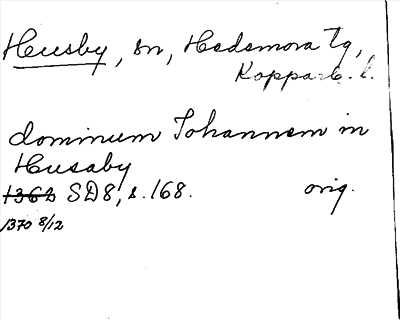 Husby, sn, Hedemora tg,
Kopparb. l.
dominum Johannem in
Husaby
1362 SD8, s. 168. orig.
1370 8/12